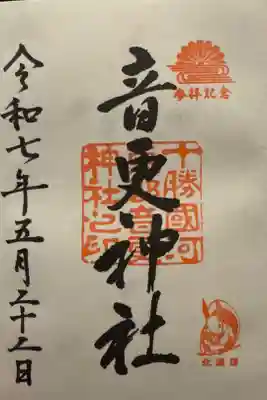 参拝記念
音更神社
十勝國河
東郡音更
神社之印
北海道
令和七年五月二十二日